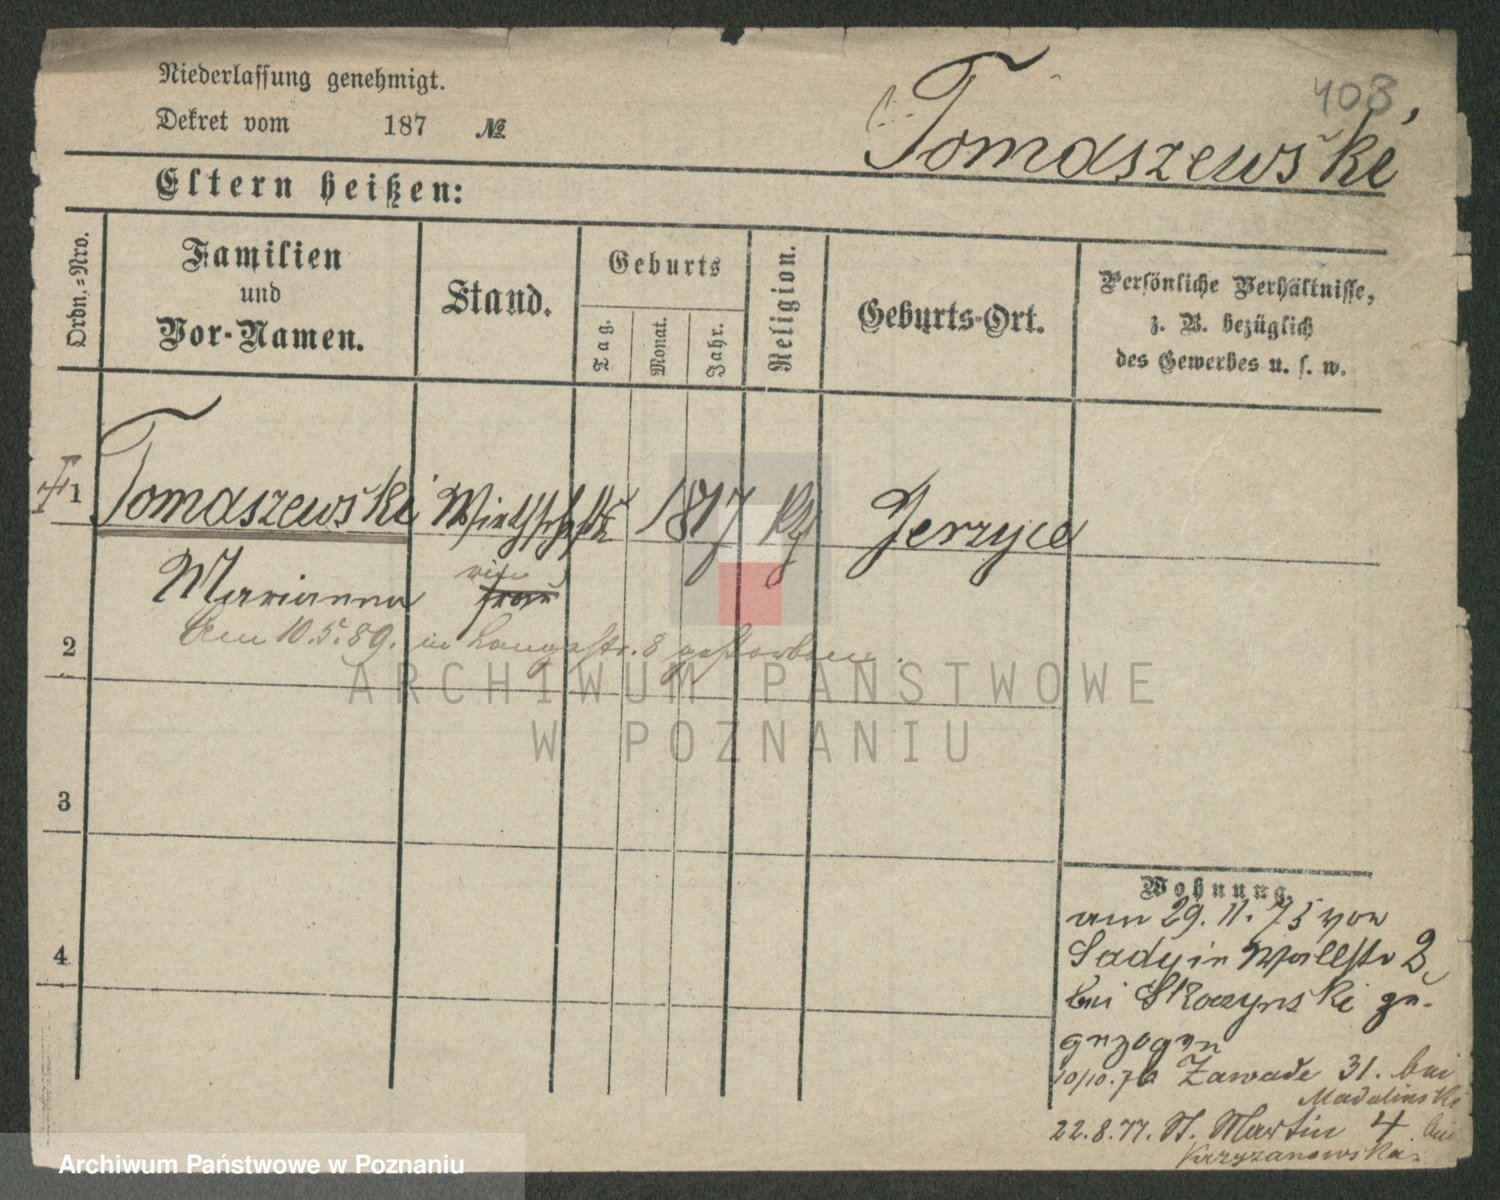 Niederlassung genehmigt.
Dekret vom 187 №
408
Tomaszewski
Eltern heißen:
Ordn.=Nro.
Familien
und
Vor-Namen.
Stand.
Geburts
Tag.
Monat.
Jahr.
Religion.
Geburts-Ort.
Persönliche Verhältnisse,
z. B. bezüglich
des Gewerbes u. s. w.
1 Tomaszewski 1817 Jerzyce
Marianna frau
2 Am 10.5.89. in Langestr. 8 gestorben.
3
4
Wohnung.
am 29.11.75 von
Sady in Wallstr 2
bei Skoczynski zu-
gezogen
10/10.76 Zawade 31. bei
Madalinski
22.8.77. St. Martin 4 bei
Krzyzanowska.
ARCHIWUM PAŃSTWOWE
W POZNANIU
Archiwum Państwowe w Poznaniu